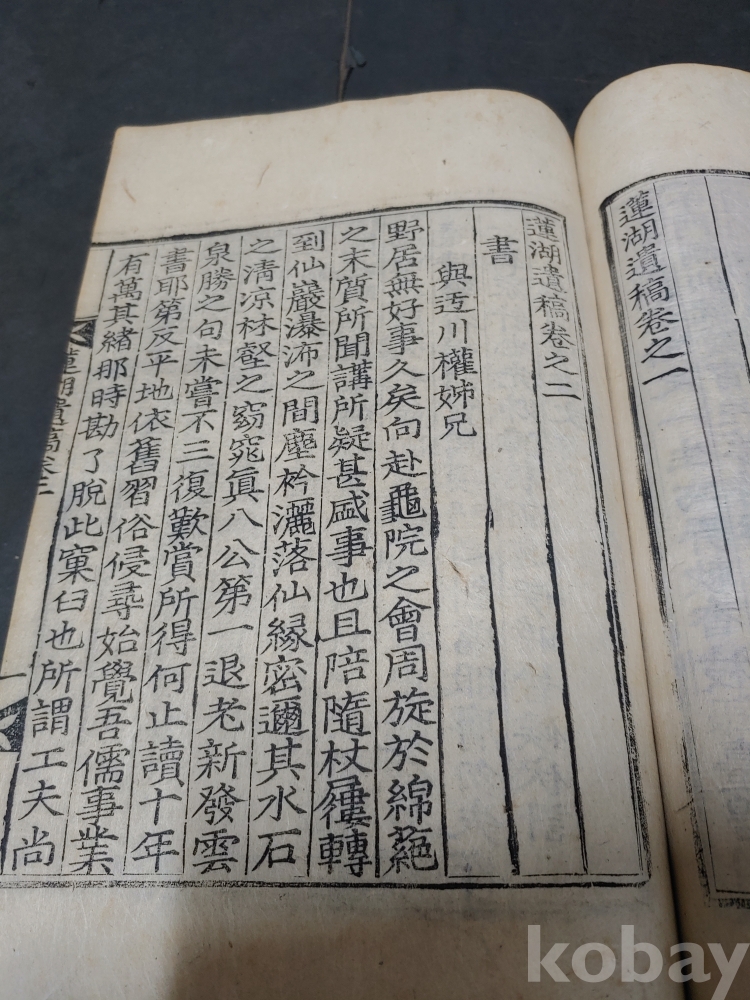 蓮湖遺稿卷之一
蓮湖遺稿卷之二
書
與迃川權姊兄
野居無好事久矣向赴龜院之會周旋於綿蕝
之末質所聞講所疑甚盛事也且陪隨杖屨轉
到仙巖瀑沛之間塵衿灑落仙緣密邇其水石
之清凉林壑之窈窕眞八公第一退老新發雲
泉勝之句未嘗不三復歎賞所得何止讀十年
書耶第反平地依舊習俗侵尋始覺吾儒事業
有萬其緖那時勘了脫此窠臼也所謂工夫尚
蓮湖遺稿卷二
一
kobay